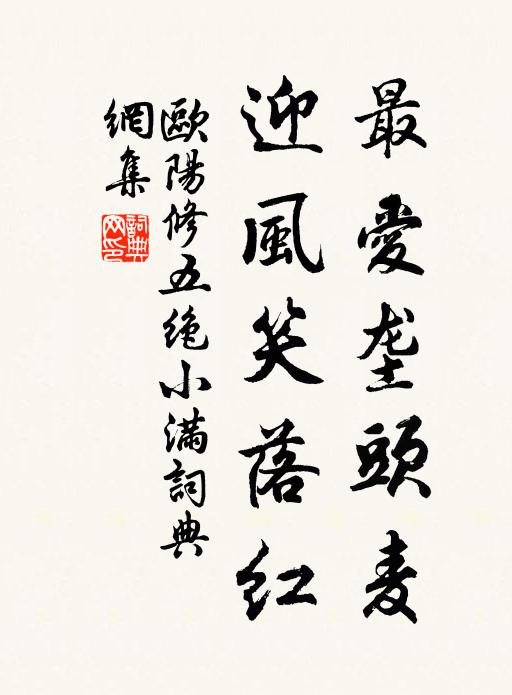 最愛垄頭麦
迎風笑落紅
歐陽修五绝小滿詞典
網集
詞典
网印